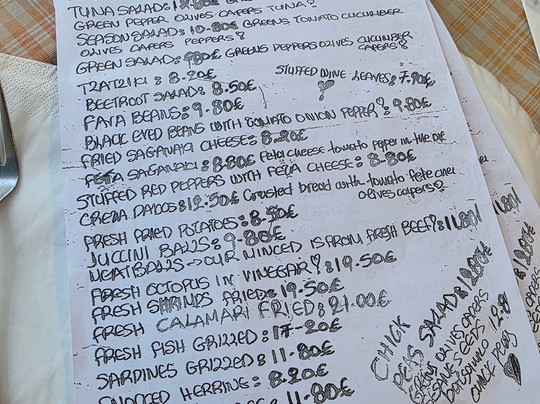 TUNA SALAD:
GREEN PEPPER OLIVES CAPERS TUNA
SEASON SALAD: 10.80€ GREENS, TOMATO CUCUMBER
OLIVES CAPERS PEPPERS
GREEN SALAD: 9.80€ GREENS PEPPERS OLIVES CUCUMBER
CAPERS
TZATZIKI: 8.20€
BEETROOT SALAD: 8.50€
STUFFED WINE LEAVES: 7.90€
FAVA BEANS: 9.80€
BLACK EYED BEANS WITH TOMATO ONION PEPPER 9.80€
FRIED SAGANAKI CHEESE: 8.20€
FETA SAGANAKI: 8.80€ Feta cheese tomato pepper in the
STUFFED RED PEPPERS WITH FETA CHEESE: 8.80€
Crusted bread with tomato Fete
olives capers
FRESH FRIED POTATOES:
JUCCINI BALLS: 9.80€
MEATBALLS → OUR MINCED IS FROM FRESH BEEF:
FRESH OCTOPUS IN VINEGAR: 19.50€
FRESH SHRINDS FRIED: 19.50€
FRESH CALAMARI FRIED: 21.00€
FRESH FISH GRILLED: 17.20€
SARDINES GRILLED: 11.80€
HERRING: 8.20€
11.80€
CHICK
PEAS SALAD:
GREENS OLIVES CAPERS
SESAME SEEDS
CHICK PEAS